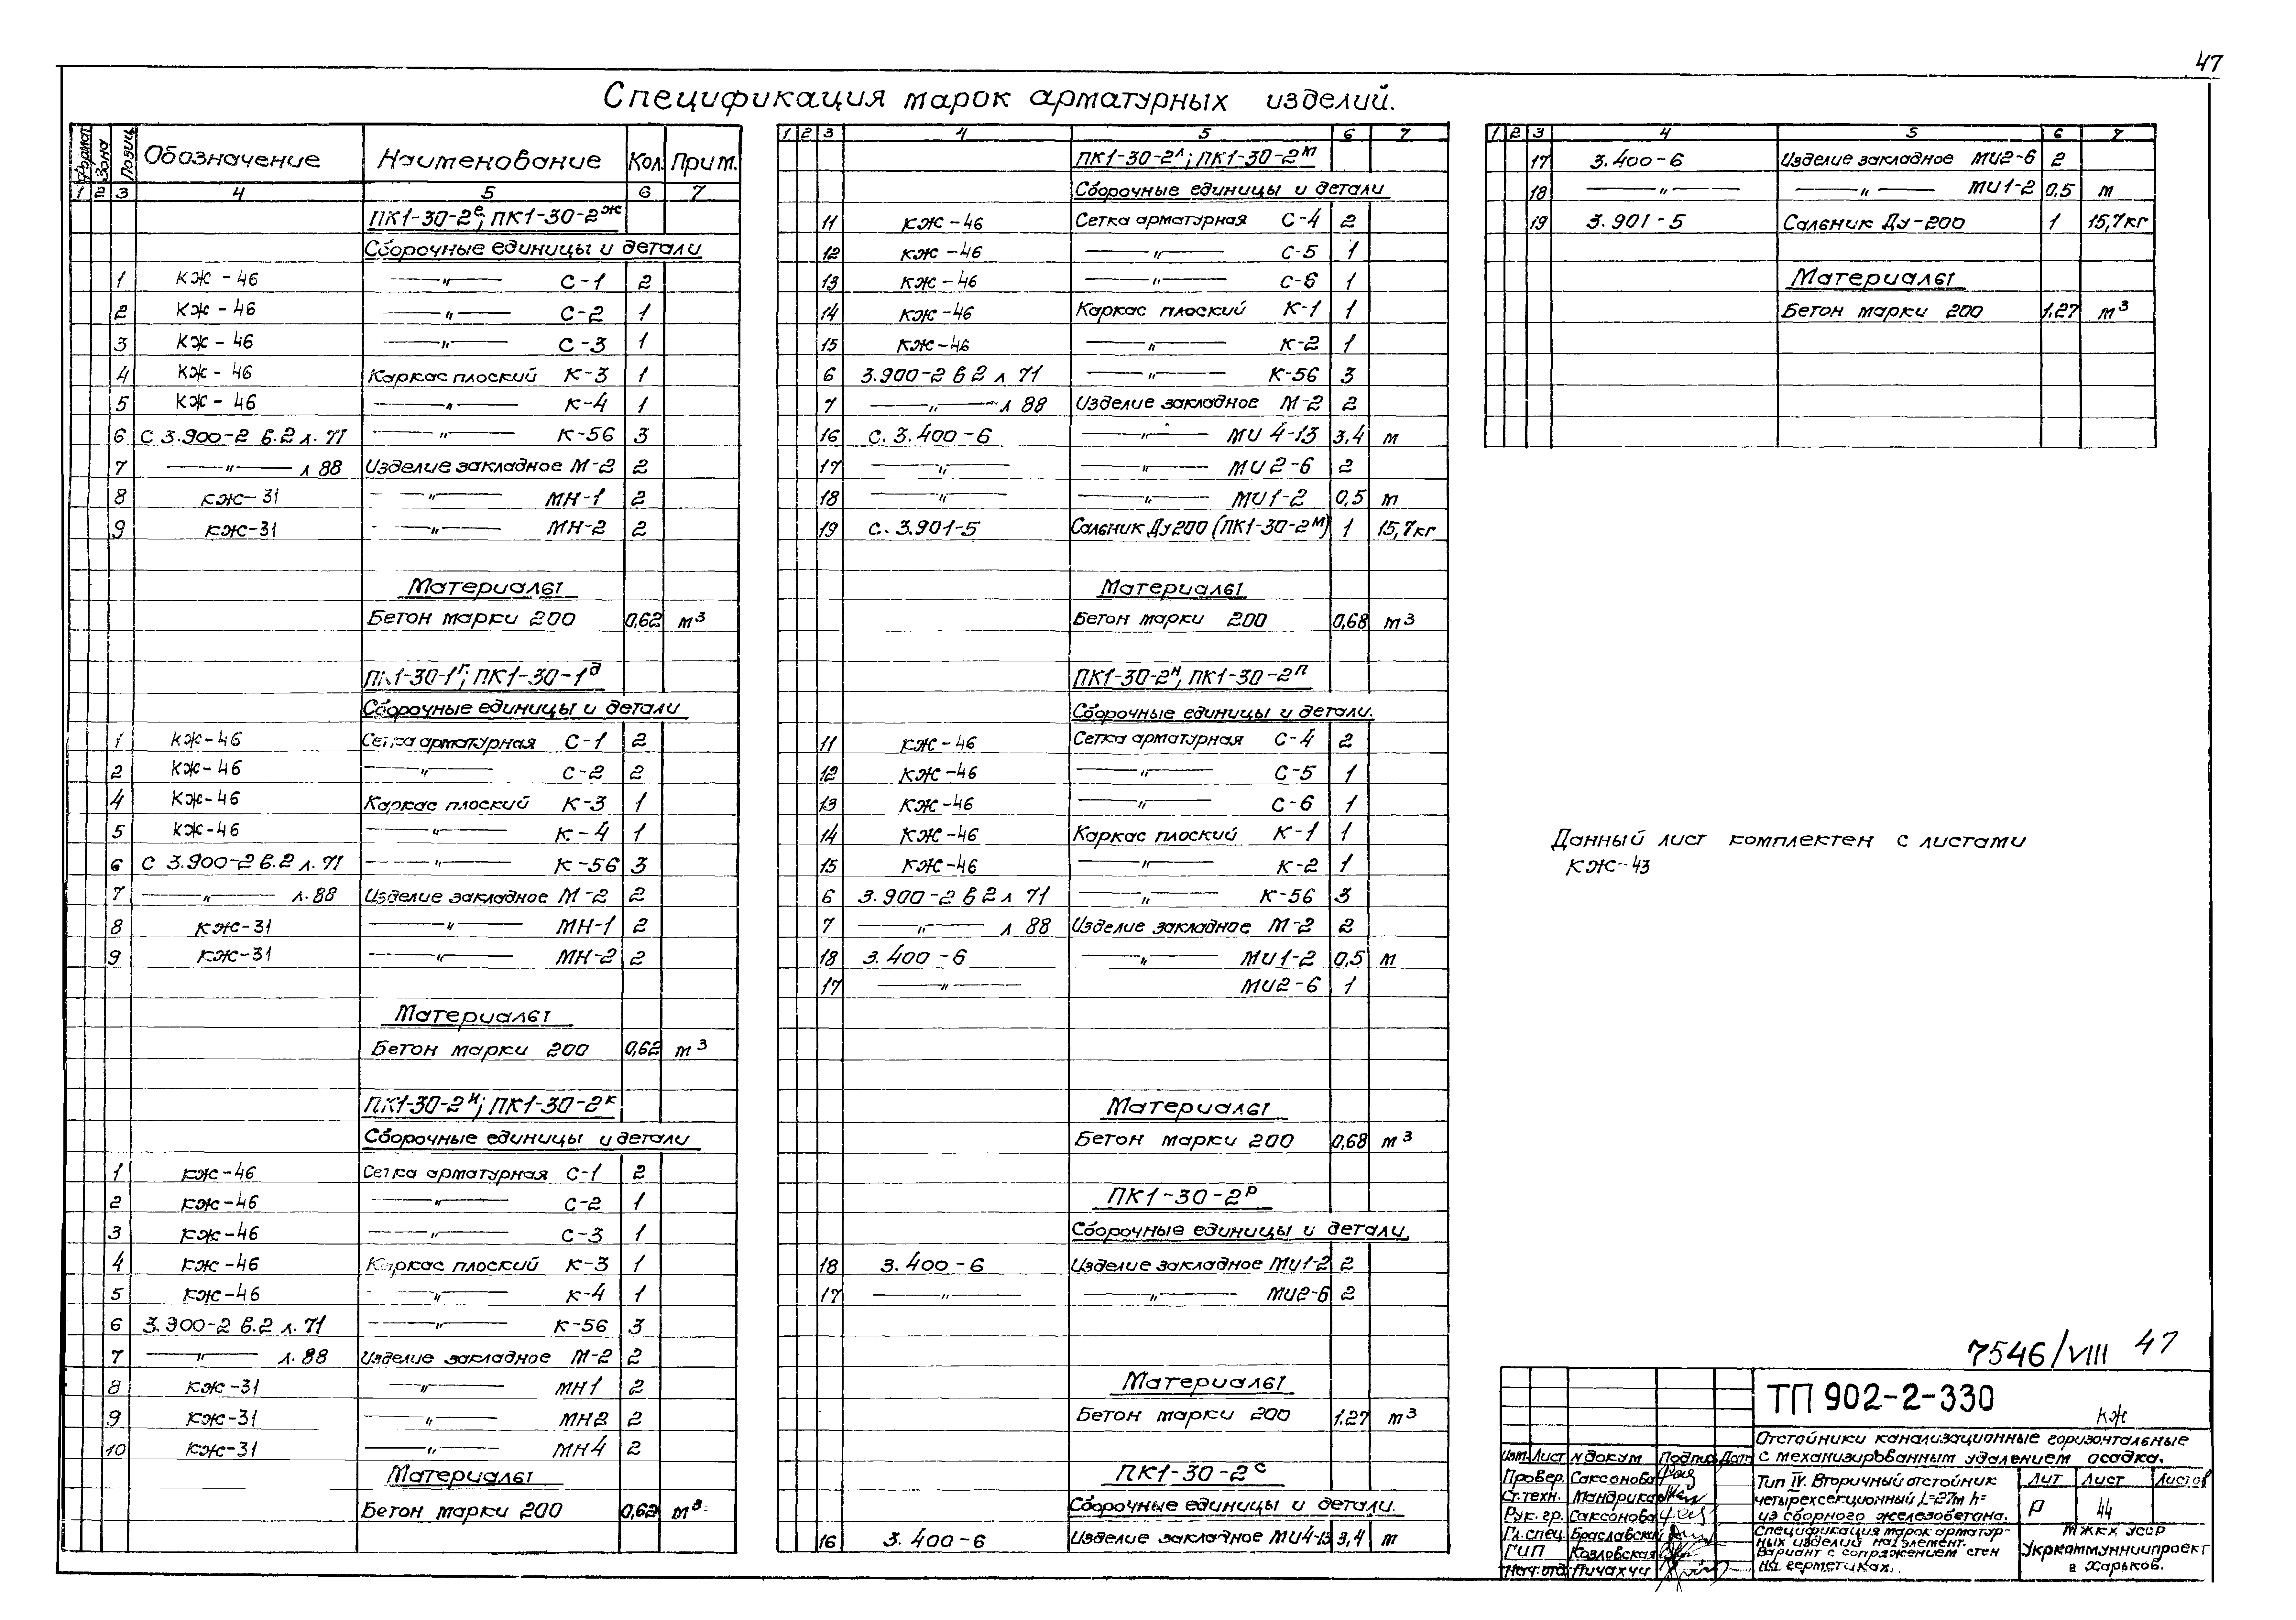 47
Спецификация марок арматурных изделий.
Формат Зона Позиц. Обозначение Наименование Кол. Прим.
1 2 3 4 5 6 7
ПК1-30-2е; ПК1-30-2ж
Сборочные единицы и детали
1 КЖ-46 —"— С-1 2
2 КЖ-46 —"— С-2 1
3 КЖ-46 —"— С-3 1
4 КЖ-46 Каркас плоский К-3 1
5 КЖ-46 —"— К-4 1
6 С 3.900-2 в.2 л. 71 —"— К-56 3
7 —"— л 88 Изделие закладное М-2 2
8 КЖ-31 —"— МН-1 2
9 КЖ-31 —"— МН-2 2
Материалы
Бетон марки 200 0,62 м³
ПК1-30-1г; ПК1-30-1д
Сборочные единицы и детали
1 КЖ-46 Сетка арматурная С-1 2
2 КЖ-46 —"— С-2 2
4 КЖ-46 Каркас плоский К-3 1
5 КЖ-46 —"— К-4 1
6 С 3.900-2 в.2 л. 71 —"— К-56 3
7 —"— л. 88 Изделие закладное М-2 2
8 КЖ-31 —"— МН-1 2
9 КЖ-31 —"— МН-2 2
Материалы
Бетон марки 200 0,62 м³
ПК1-30-2и; ПК1-30-2к
Сборочные единицы и детали
1 КЖ-46 Сетка арматурная С-1 2
2 КЖ-46 —"— С-2 1
3 КЖ-46 —"— С-3 1
4 КЖ-46 Каркас плоский К-3 1
5 КЖ-46 —"— К-4 1
6 3.900-2 в.2 л. 71 —"— К-56 3
7 —"— л. 88 Изделие закладное М-2 2
8 КЖ-31 —"— МН1 2
9 КЖ-31 —"— МН2 2
10 КЖ-31 —"— МН4 2
Материалы
Бетон марки 200 0,62 м³
1 2 3 4 5 6 7
ПК1-30-2л; ПК1-30-2м
Сборочные единицы и детали
11 КЖ-46 Сетка арматурная С-4 2
12 КЖ-46 —"— С-5 1
13 КЖ-46 —"— С-6 1
14 КЖ-46 Каркас плоский К-1 1
15 КЖ-46 —"— К-2 1
6 3.900-2 в 2 л 71 —"— К-56 3
7 —"— л 88 Изделие закладное М-2 2
16 С. 3.400-6 —"— МИ 4-13 3,4 м
17 —"— —"— МИ2-6 2
18 —"— —"— МИ1-2 0,5 м
19 С. 3.901-5 Сальник Ду200 (ПК1-30-2м) 1 15,7кг
Материалы
Бетон марки 200 0,68 м³
ПК1-30-2н, ПК1-30-2п
Сборочные единицы и детали.
11 КЖ-46 Сетка арматурная С-4 2
12 КЖ-46 —"— С-5 1
13 КЖ-46 —"— С-6 1
14 КЖ-46 Каркас плоский К-1 1
15 КЖ-46 —"— К-2 1
6 3.900-2 в 2 л 71 —"— К-56 3
7 —"— л 88 Изделие закладное М-2 2
18 3.400-6 —"— МИ1-2 0,5 м
17 —"— МИ2-6 1
Материалы
Бетон марки 200 0,68 м³
ПК1-30-2р
Сборочные единицы и детали.
18 3.400-6 Изделие закладное МИ1-2 2
17 —"— —"— МИ2-6 2
Материалы
Бетон марки 200 1.27 м³
ПК1-30-2с
Сборочные единицы и детали.
16 3.400-6 Изделие закладное МИ4-13 3,4 м
1 2 3 4 5 6 7
17 3.400-6 Изделие закладное МИ2-6 2
18 —"— —"— МИ1-2 0,5 м
19 3.901-5 Сальник Ду-200 1 15,7кг
Материалы
Бетон марки 200 1.27 м³
Данный лист комплектен с листами
КЖ-43
7546/VIII 47
ТП 902-2-330
КЖ
Отстойники канализационные горизонтальные
с механизированным удалением осадка.
Изм. Лист Nдокум Подпир Дата
Провер. Саксонова
Ст.техн. Мандрика
Рук. гр. Саксонова
Гл. спец. Браславский
ГИП Козловская
Нач. отд. Пичахчи
Тип IV. Вторичный отстойник
четырехсекционный L=27м h=
из сборного железобетона.
Спецификация марок арматур-
ных изделий на элемент.
Вариант с сопряжением стен
на герметиках.
Лит Лист Листов
Р 44
МЖКХ УССР
Укркоммунниипроект
г Харьков.